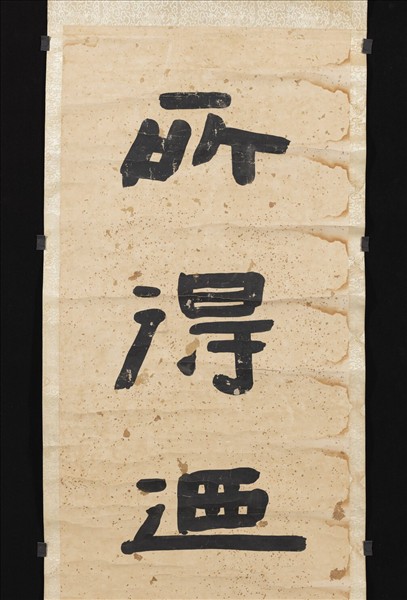 所得迺